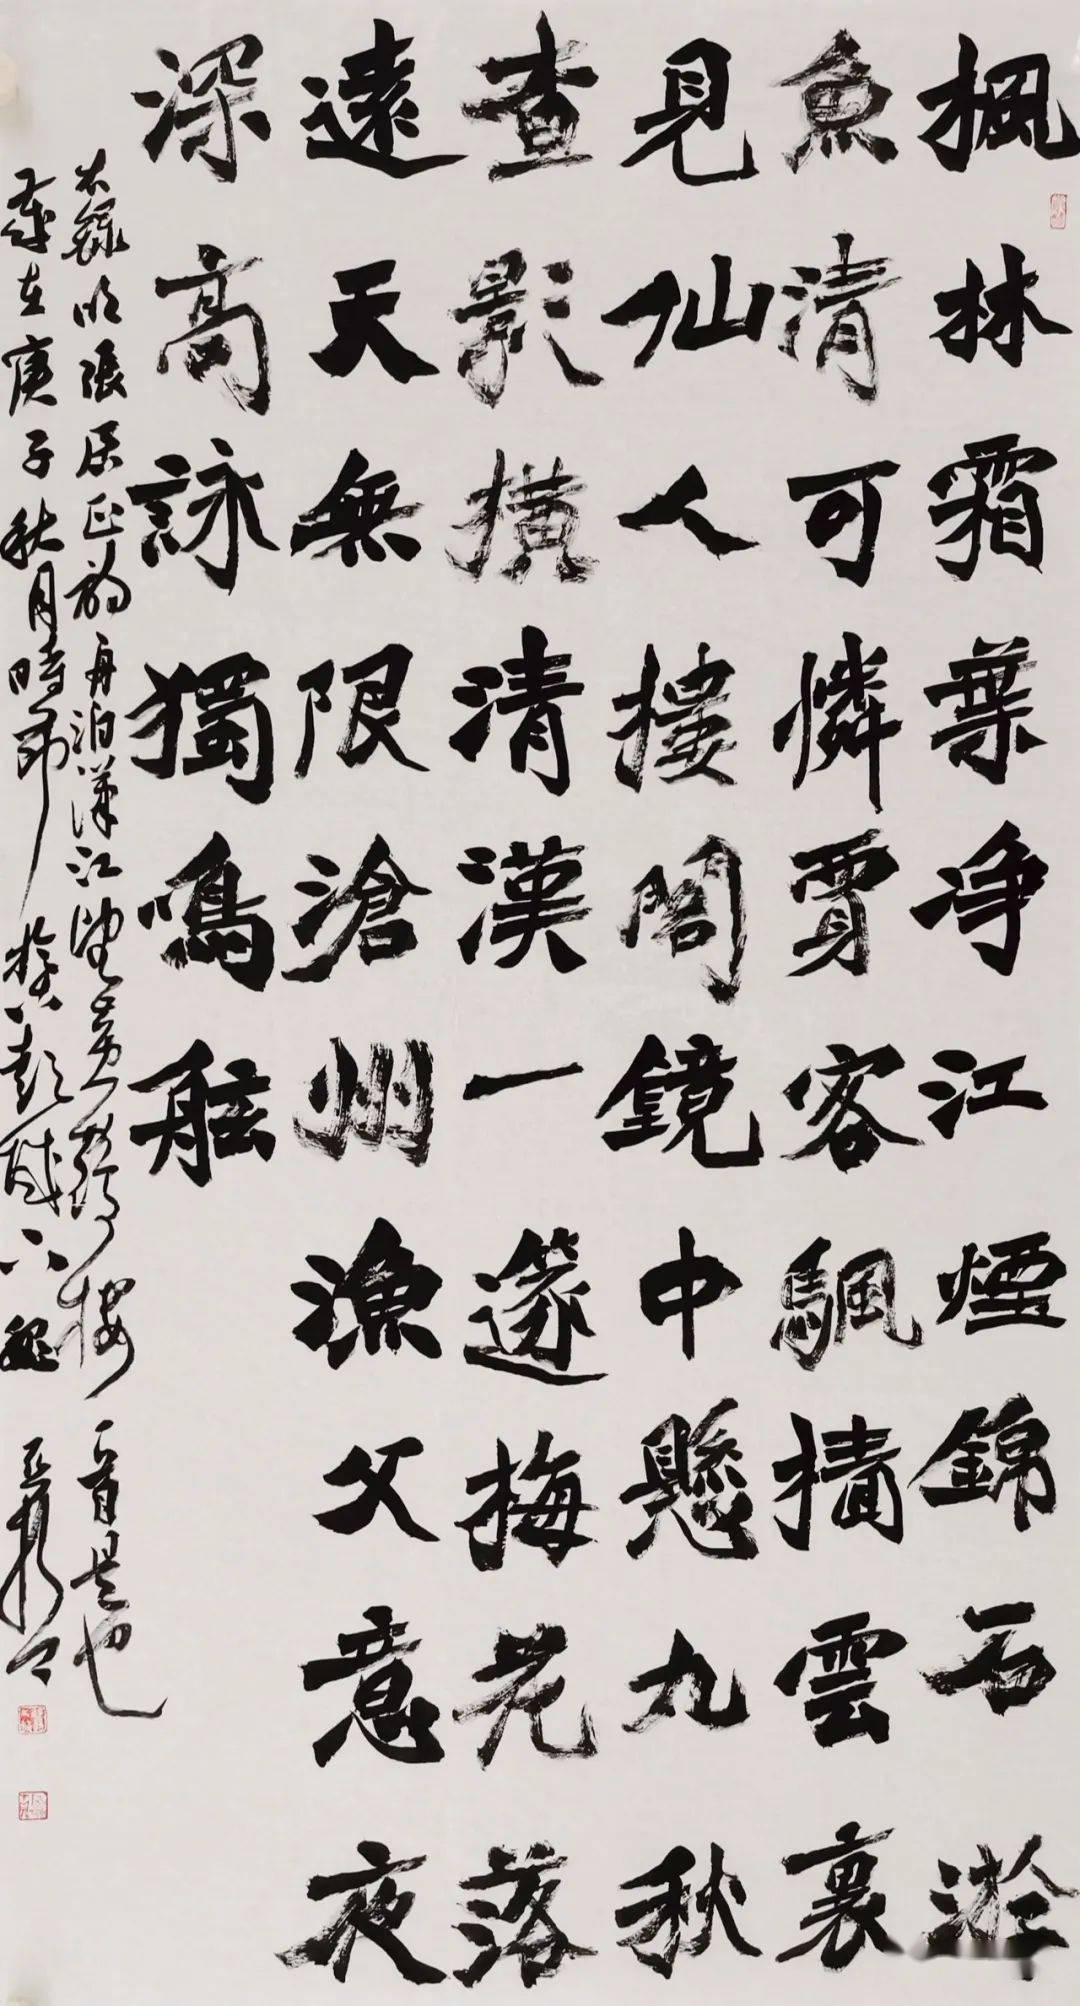 楓林霜葉净江煙錦石游
魚清可憐賈客颿檣雲裏
見仙人樓閣鏡中懸九秋
查影横清漢一邃梅花落
遠天無限滄州漁父意夜
深高詠獨鳴舷
右錄明張居正的舟泊漢江望黃鶴樓一首是也
歲在庚子秋月時節於彭城